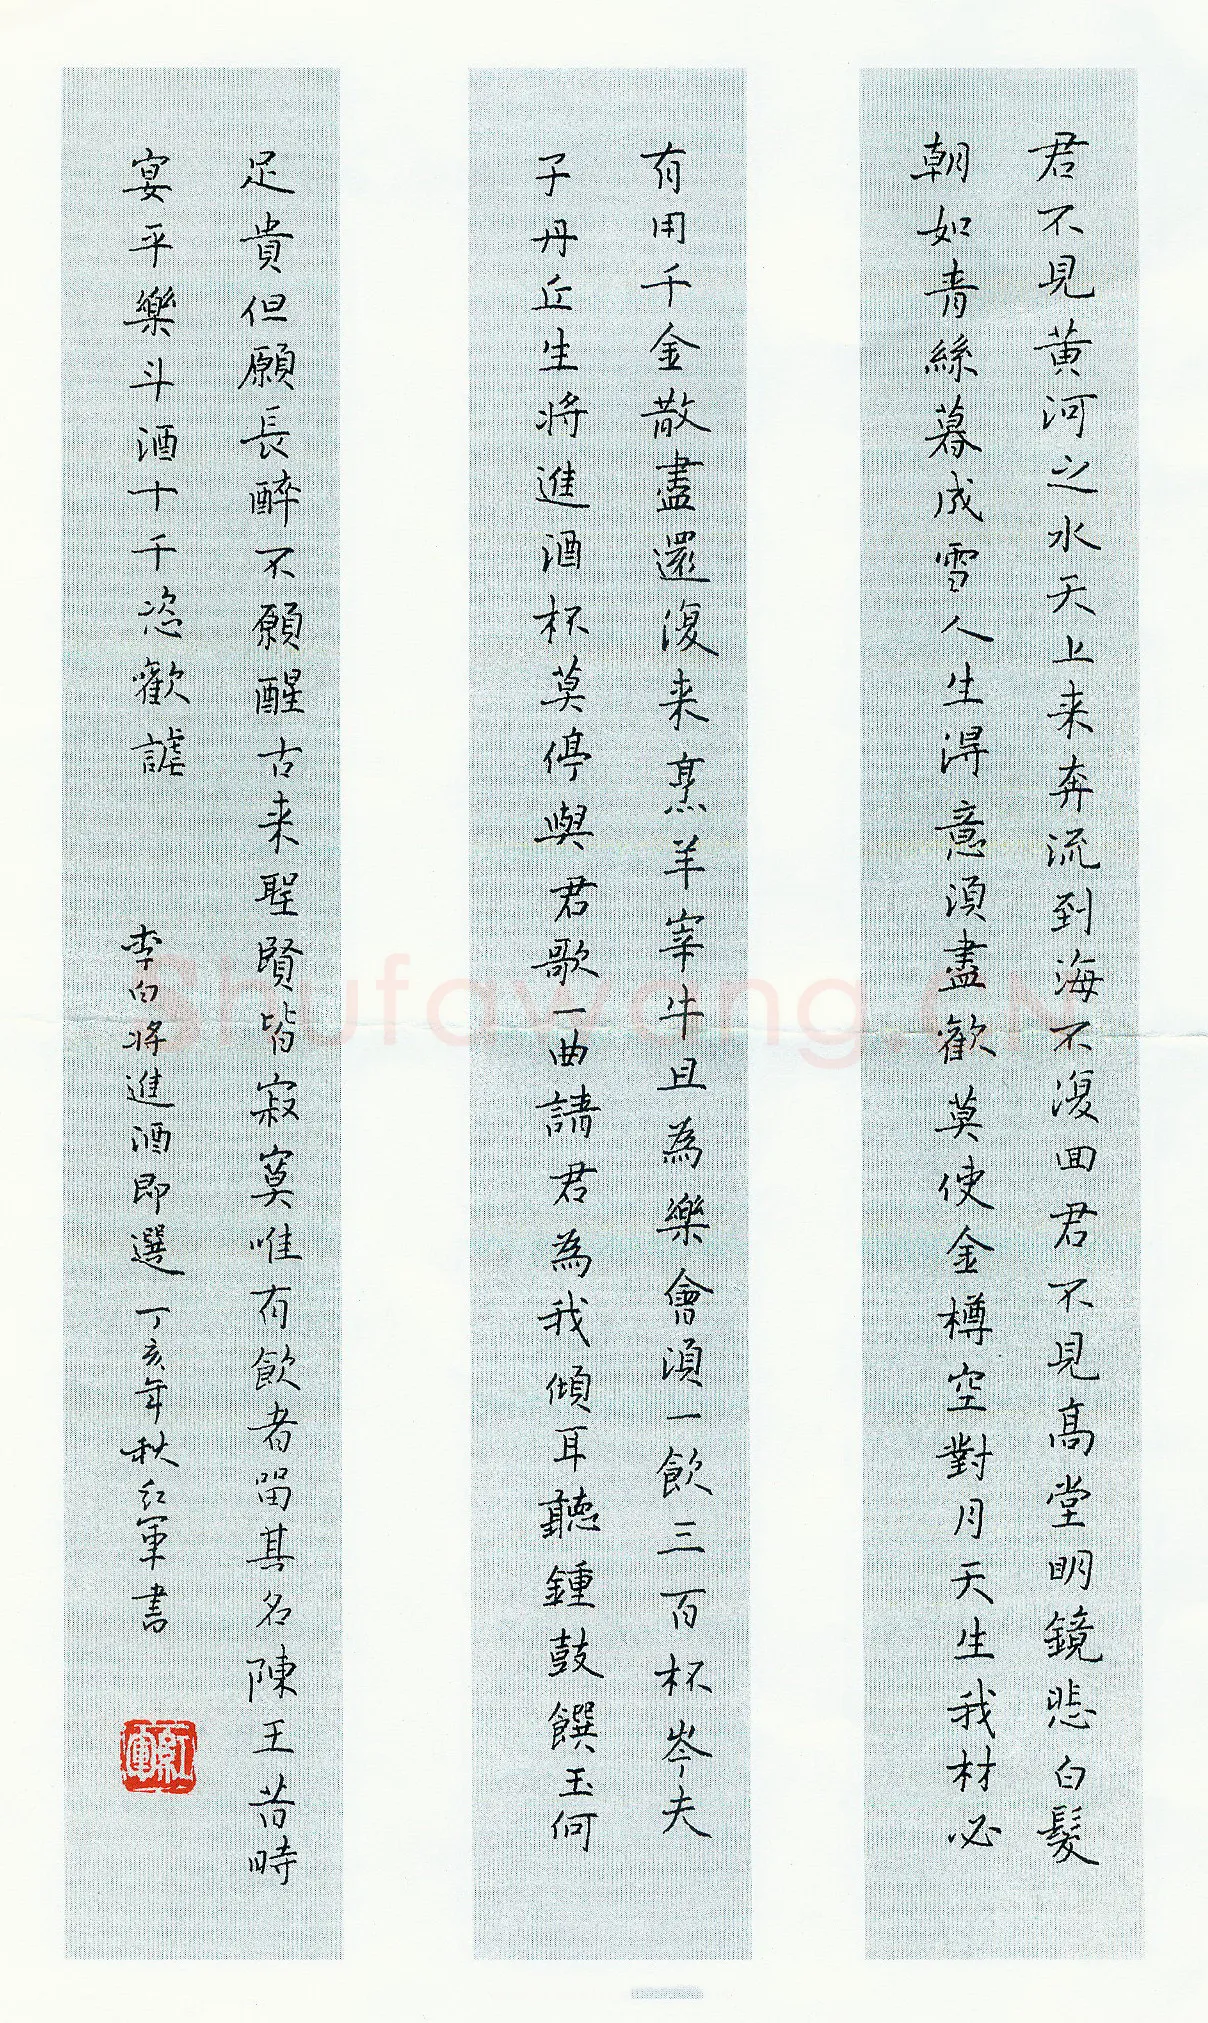 君不見黃河之水天上来奔流到海不復回君不見高堂明鏡悲白髮
朝如青絲暮成雪人生得意須盡歡莫使金樽空對月天生我材必
有用千金散盡還復来烹羊宰牛且為樂會須一飲三百杯岑夫
子丹丘生將進酒杯莫停與君歌一曲請君為我傾耳聽鍾鼓饌玉何
足貴但願長醉不願醒古来聖賢皆寂寞唯有飲者留其名陳王昔時
宴平樂斗酒十千恣歡謔
李白將進酒即選 丁亥年秋紅軍書
紅軍
Shufawang.CN